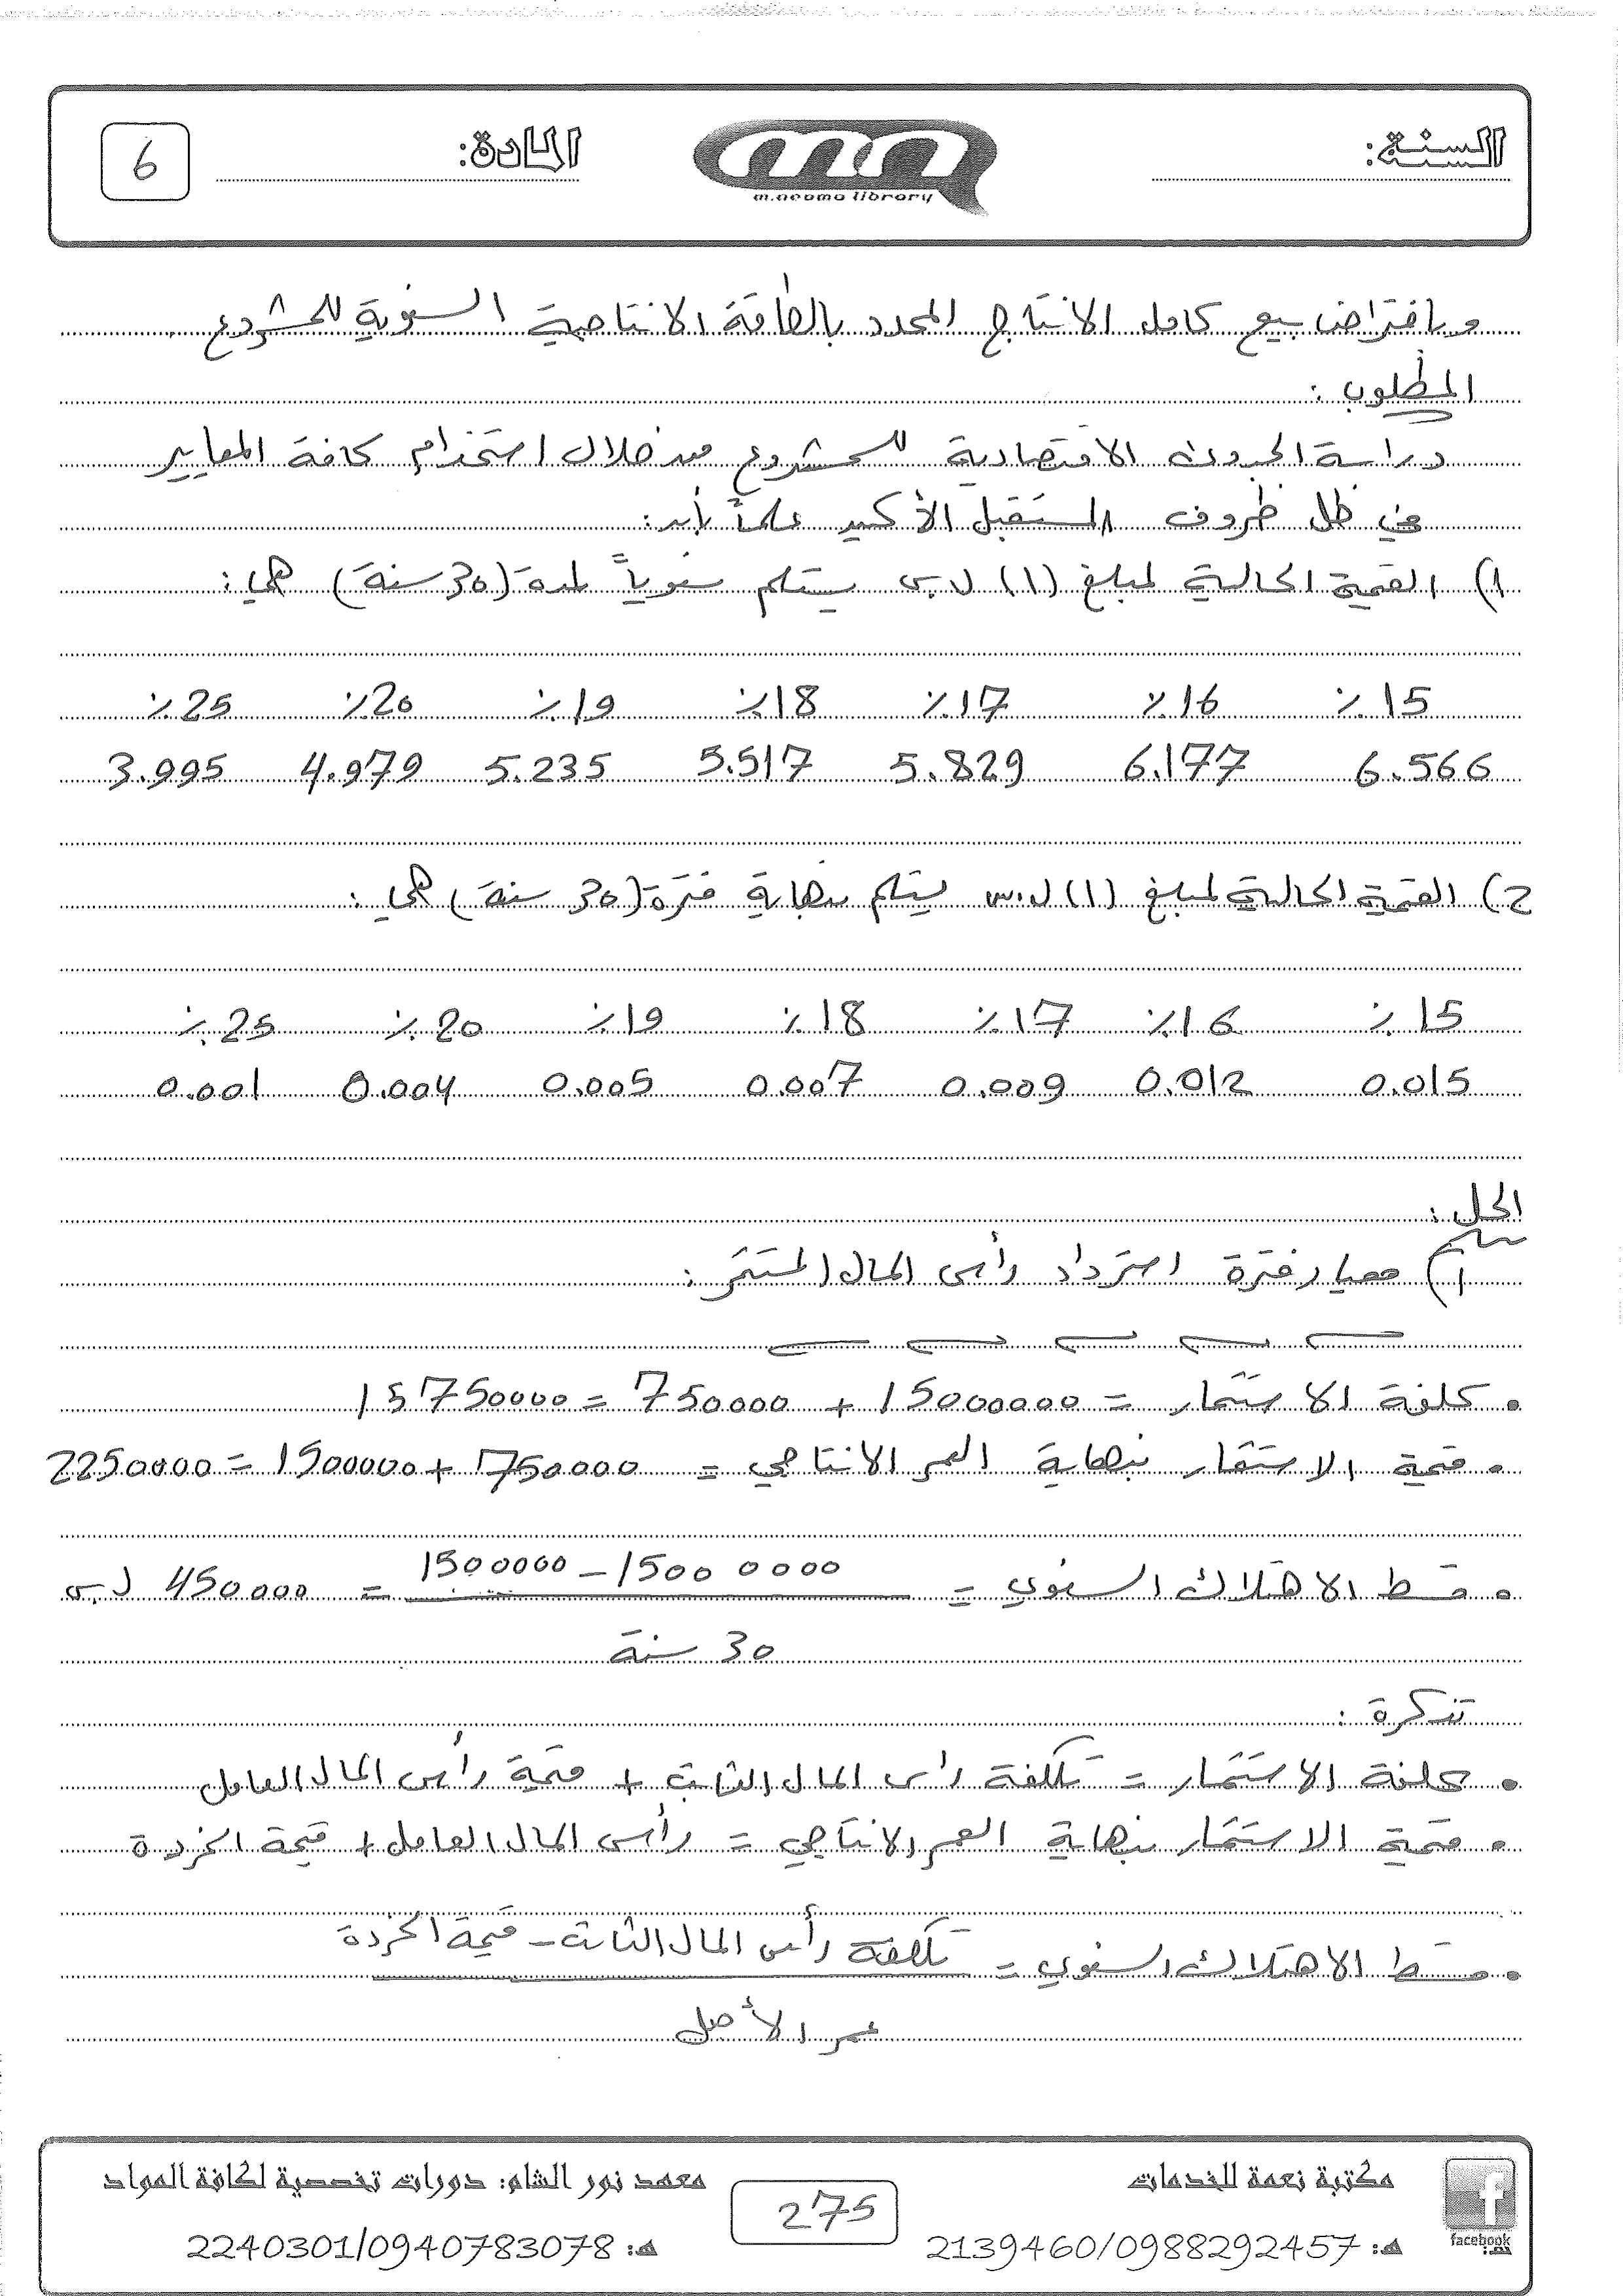 السنة:
m.neoma library
المادة:
6
وبافتراض بيع كامل الانتاج المحدد بالطاقة الانتاجية السنوية للمشروع
المطلوب :
دراسة الجدوى الاقتصادية للمشروع من خلال استخدام كافة المعايير
في ظل ظروف المستقبل الأكيد علماً بأن:
1) القيمة الحالية لمبلغ (1) ل.س يستلم سنوياً لمدة (30 سنة) هي:
15٪ 16٪ 17٪ 18٪ 19٪ 20٪ 25٪
6.566 6.177 5.829 5.517 5.235 4.979 3.995
2) القيمة الحالية لمبلغ (1) ل.س يستلم بنهاية فترة (30 سنة) هي :
15٪ 16٪ 17٪ 18٪ 19٪ 20٪ 25٪
0.015 0.012 0.009 0.007 0.005 0.004 0.001
الحل :
1) معيار فترة استرداد رأس المال المستثمر :
• كلفة الاستثمار = 15000000 + 750000 = 15750000
• قيمة الاستثمار بنهاية العمر الانتاجي = 750000 + 1500000 = 2250000
• قسط الاهتلاك السنوي = 15000000 - 1500000 = 450000 ل.س
30 سنة
تذكرة :
• كلفة الاستثمار = تكلفة رأس المال الثابت + قيمة رأس المال العامل
• قيمة الاستثمار بنهاية العمر الانتاجي = رأس المال العامل + قيمة الخردة
• قسط الاهتلاك السنوي = تكلفة رأس المال الثابت - قيمة الخردة
عمر الأصل
مكتبة نعمة للخدمات
هـ: 2139460/0988292457
facebook
275
معهد نور الشام: دورات تخصصية لكافة المواد
هـ: 2240301/0940783078